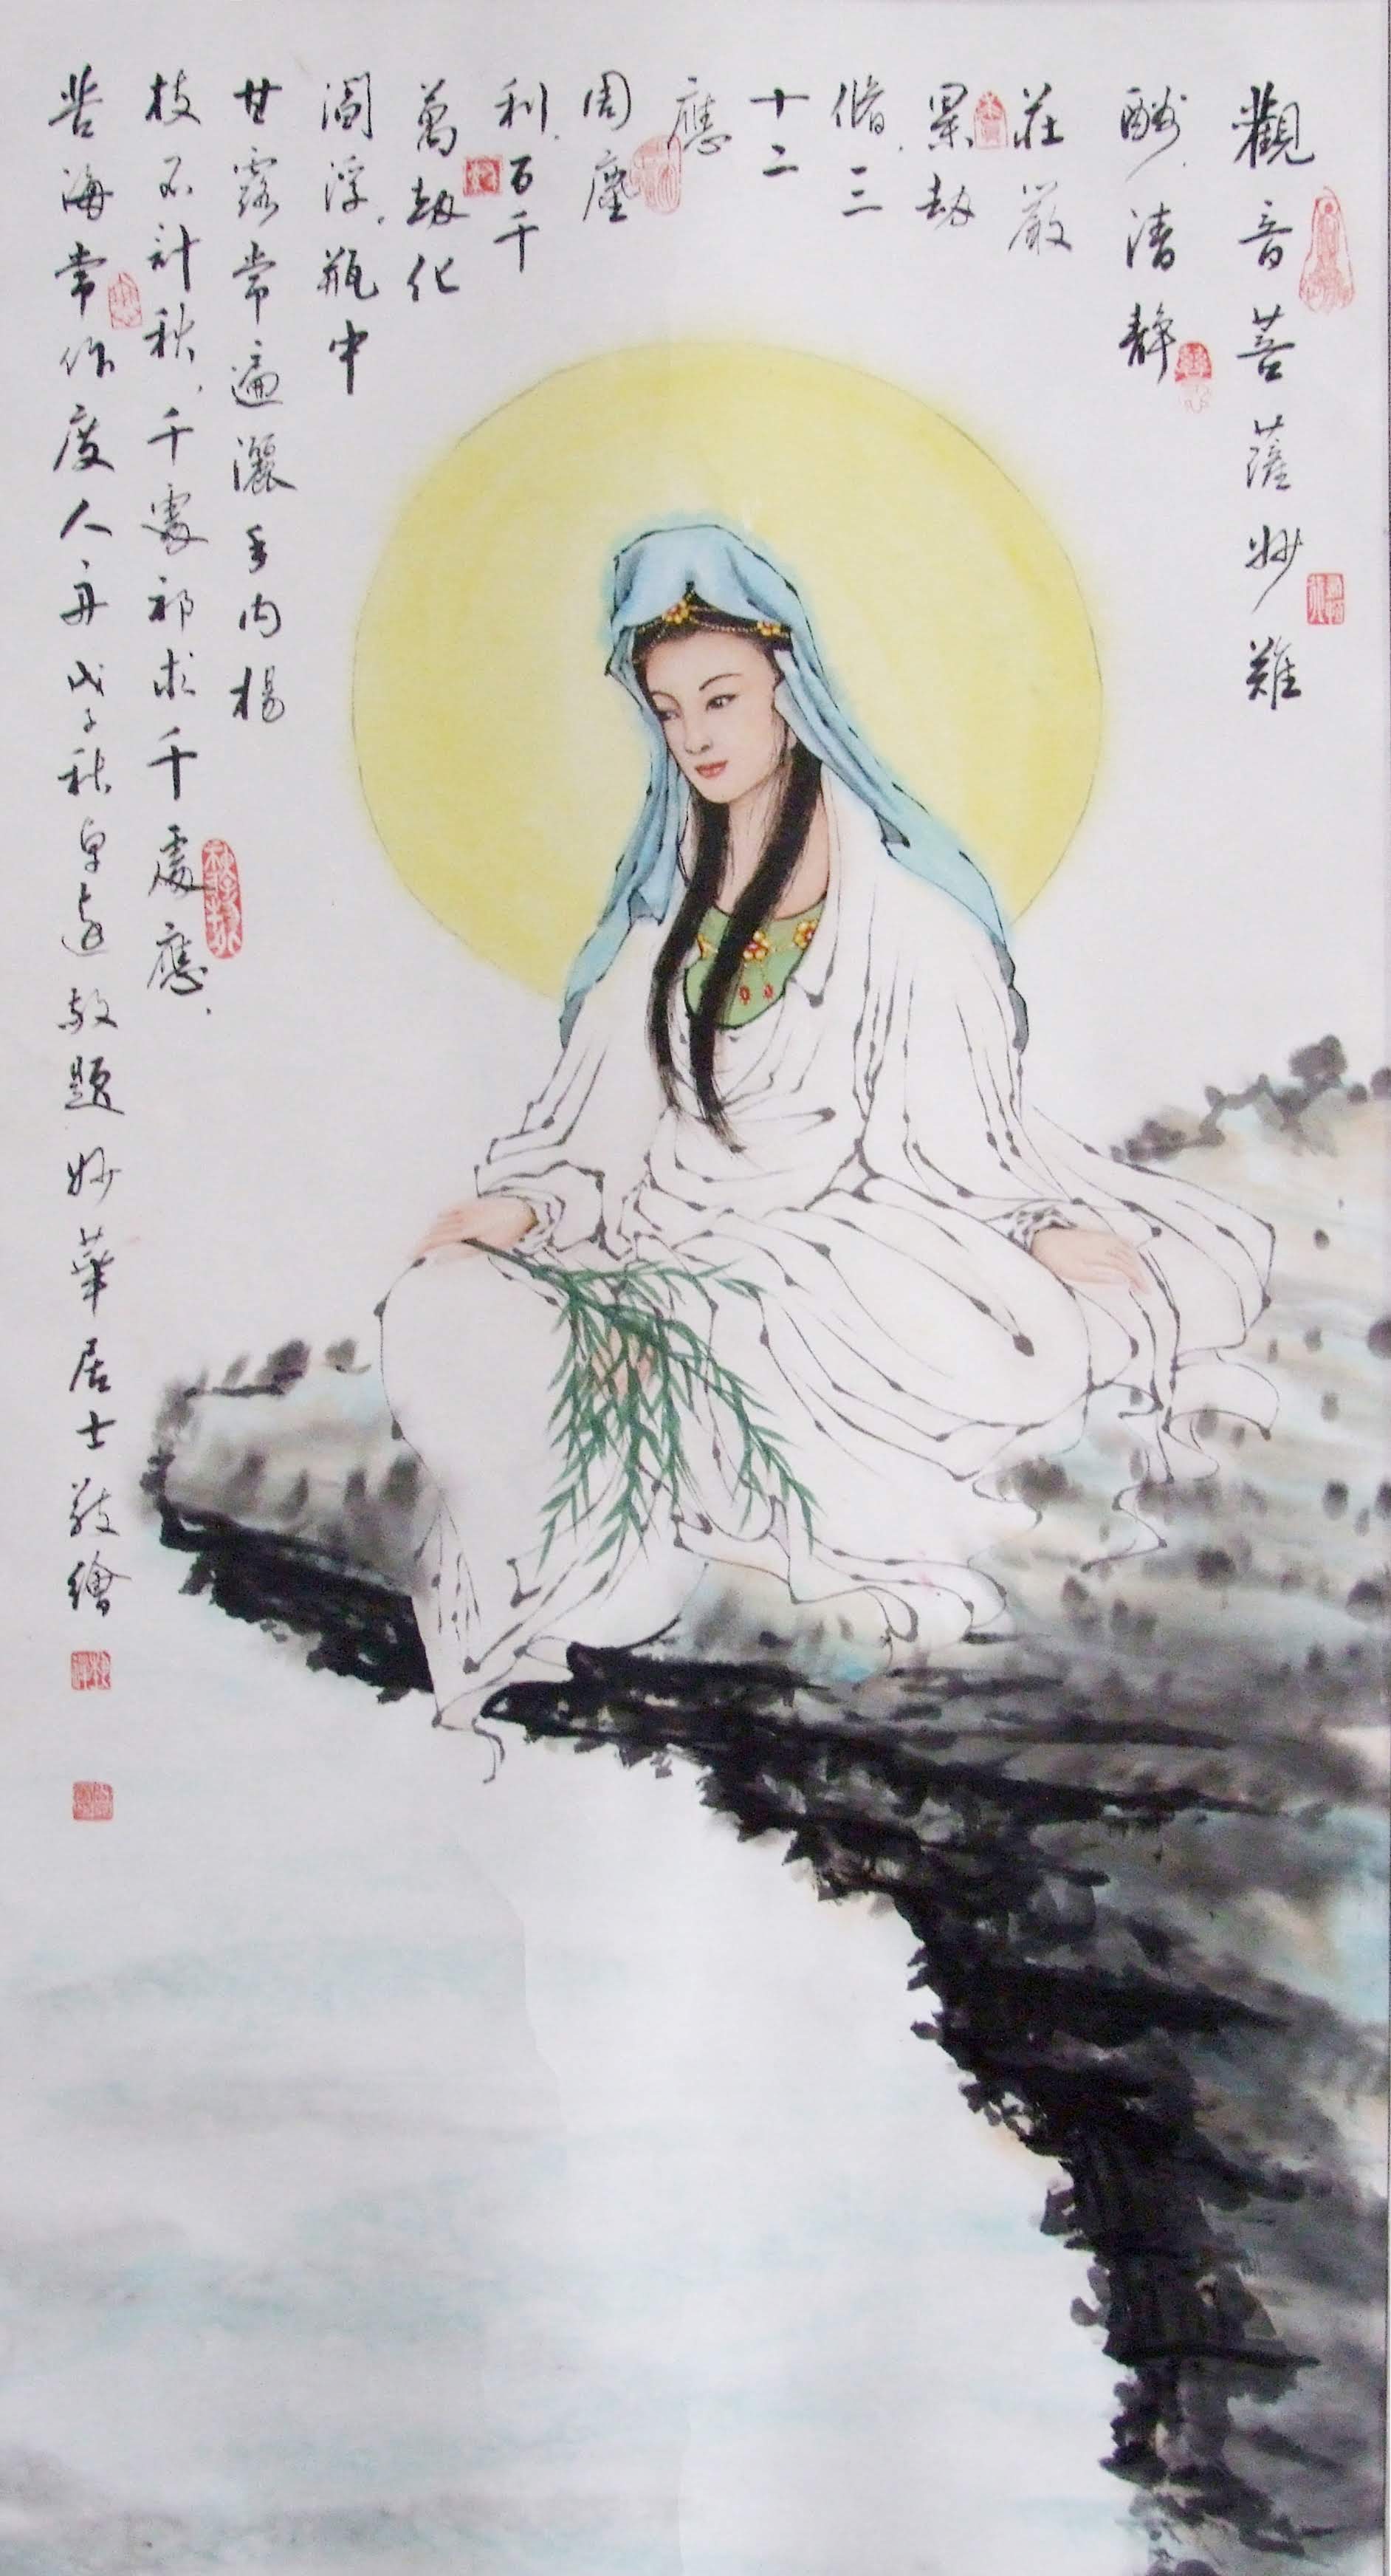 觀音菩薩妙難
酬清靜
莊嚴
累劫
脩三
十二
應
周塵
利百千
萬劫化
閻浮瓶中
甘露常遍灑手內楊
枝不計秋千處祁求千處應
苦海常作度人舟戊子秋卓遠敬題妙華居士敬繪